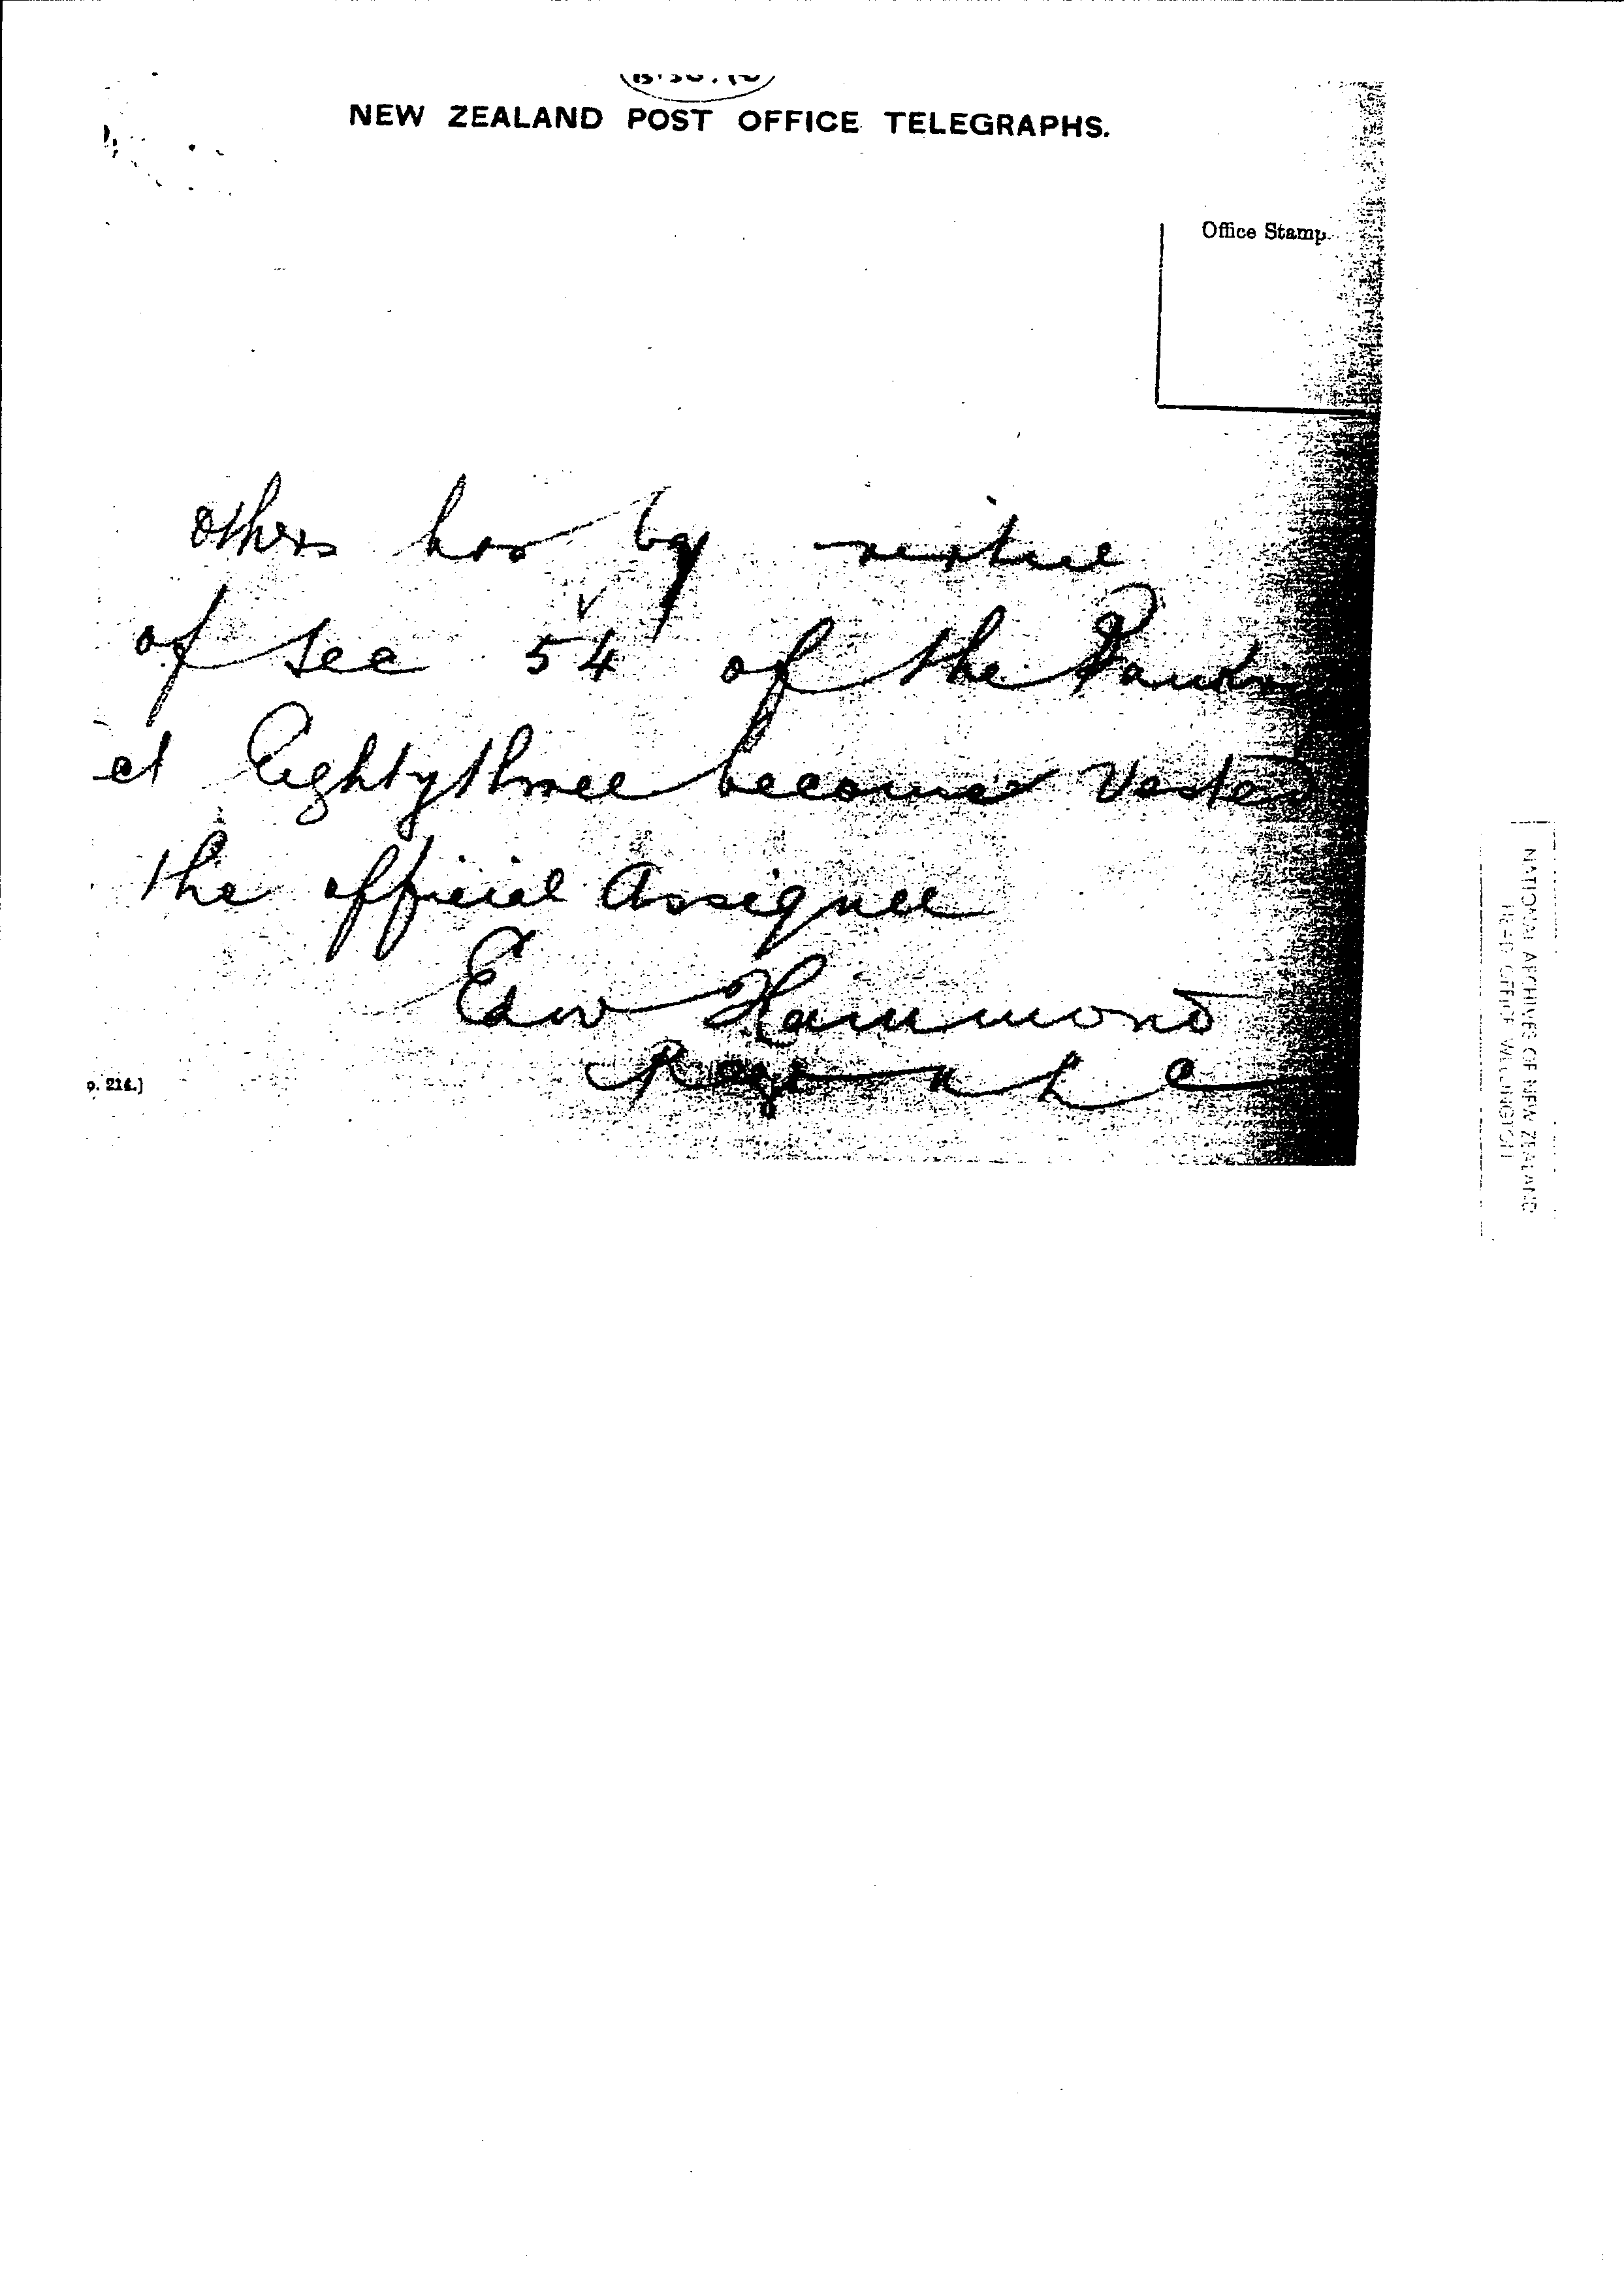 NEW ZEALAND POST OFFICE TELEGRAPHS.
Office Stamp.
others has by virtue
of sec 54 of the
ct Eightythree become vested
the official Assignee
Edw Hammond
N L C
p. 214.)
NATIONAL ARCHIVES OF NEW ZEALAND
HEAD OFFICE WELLINGTON